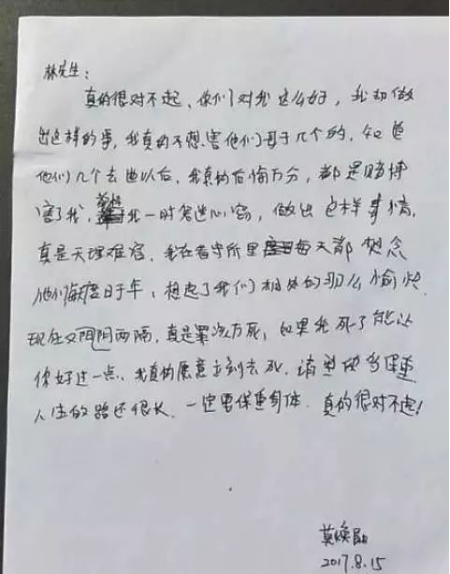 林先生:
真的很对不起、你们对我这么好，我却做
出这样的事，我真的不想害他们母子几个的，知道
他们几个去世以后，我真的后悔万分，都是赌博
害了我，我一时鬼迷心窍，做出这样事情，
真是天理难容，我在看守所里每天都想念
他们度日于年，想起了我们相处的那么愉快
现在又阴阳两隔，真是罪该万死，如果我死了能让
你好过一点、我真的愿意立刻去死、请
人生的路还很长、一定要保重身体、真的很对不起！
莫焕晶
2017.8.15